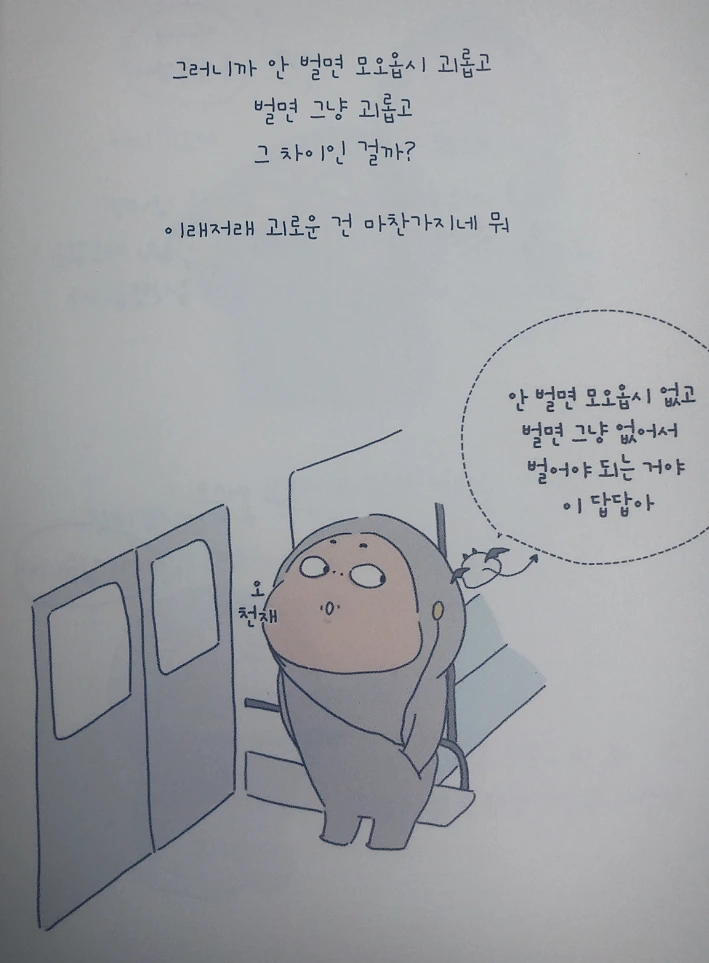 그러니까 안 벌면 모오옵시 괴롭고
벌면 그냥 괴롭고
그 차이인 걸까?
이래저래 괴로운 건 마찬가지네 뭐
안 벌면 모오옵시 없고
벌면 그냥 없어서
벌어야 되는 거야
이 답답아
오
천재